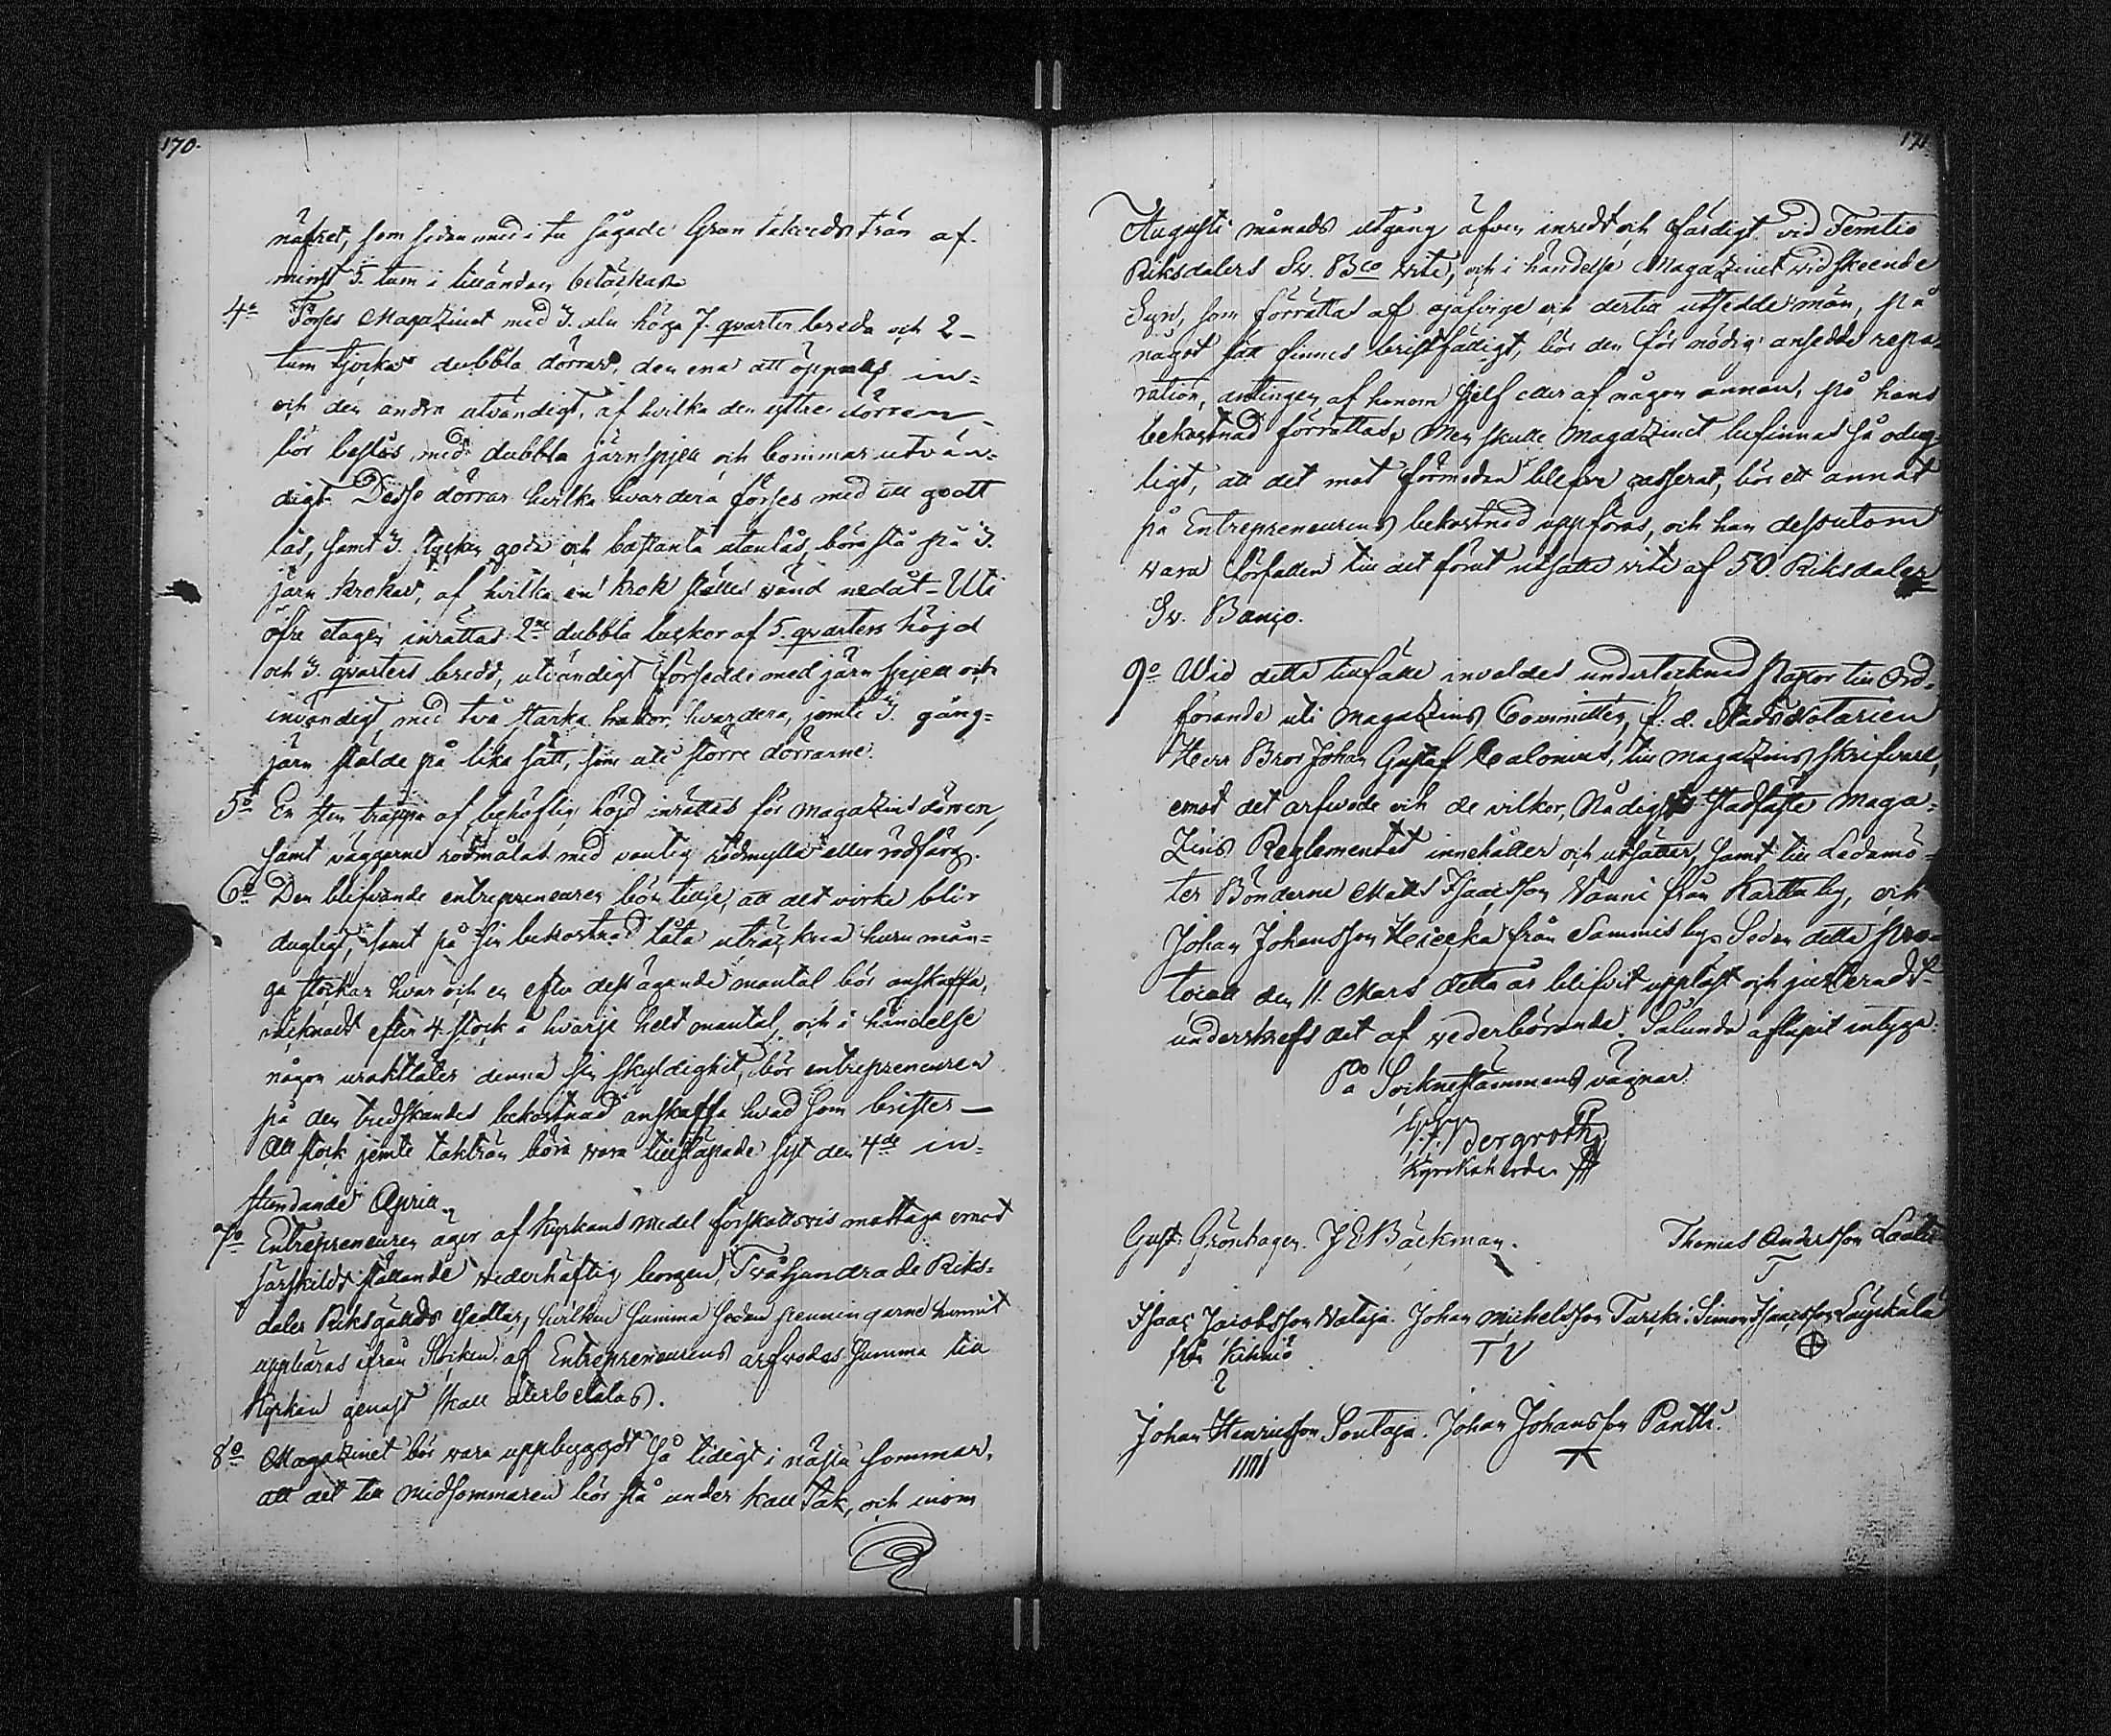 170.
näfret, som sedan med i tu sågade Gran takvedsträn af
minst 5. tum i lilländan betäckas
4o Förses Magazinet med 3. aln höga 7. qvarter breda och 2
tum tjocka dubbla dörrar, den ena att öppnas in=
och den andra utvändigt, af hvilka den yttre dörren
bör beslås med dubbla järnspjell och bommar utvän=
digt. Desse dörrar hvilka hvardera förses med ett godt
lås, samt 3. stycken goda och bastanta utanlås, böra stå på 3.
järn krokar, af hvilka en krok ställes vänd nedåt - Uti
öfre etagen inrättas 2ne dubbla luckor af 5. qvarters höjd
och 3. qvarters bredd, utvändigt försedde med järn spjell och
invändigt med två starka hakor, hvardera, jemte 3. gång=
järn stälde på lika sätt, som uti större dörrarne.
5o En sten trappa af behöflig höjd inrättas för magazins dörren,
samt väggarne rödmålas med vanlig rödmylla eller rödfärg.
6o Den blifvande entrepreneuren bör tillse, att det virke blir
dugligt, samt på sin bekostnad låta uträkna huru mån=
ga stockar hvar och en efter dess ägande mantal bör anskaffa,
räknadt efter 4. stock å hvarje helt mantal, och i händelse
någon uraktlåter denna sin skyldighet, bör entrepreneuren
på den tredskandes bekostnad anskaffa hvad som brister —
All stock jemte takträn böra vara tillsläpade sist den 4de in=
stundande April.
7o Entrepreneuren äger af Kyrkans medel förskottsvis mottaga emot
särskildt ställande vederhäftig borgen, Tvåhundrade Riks=
daler Riksgälds Sedlar, hvilken summa sedan penningarne hunnit
uppbäras ifrån Socken af Entrepreneurens arfvodes summa till
Kyrkan genast skall återbetalas.
8o Magazinet bör vara uppbyggdt så tidigt i nästa sommar,
att det till midsommaren bör stå under kall tak, och inom
171
Augusti månads utgång äfven inredt och färdigt vid Femtio
Riksdalers Sv. Bco vite, och i händelse Magazinet vid skeende
Syn, som förrättas af ojäfvige och dertill utsedde män, på
något sätt finnes bristfälligt, bör den för nödig ansedde repa=
ration, antingen af honom sjelf eller af någon annan, på hans
bekostnad förrättas. Men skulle Magazinet befinnas så odug=
ligt, att det mot förmodan blefve casserat, bör ett annat
på Entrepreneurens bekostnad uppföras, och han dessutom
vara förfallen till det förut utsatte vite af 50. Riksdaler
Sv. Banco.
9o Wid detta tillfälle invaldes undertecknad Pastor till Ord=
förande uti Magazins Committen, f. d. Stads Notarien
Herr Bror Johan Gustaf Calonius, till magazins skrifvare,
emot det arfvode och de vilkor, Nådigst Stadfäste Maga=
zins Reglementet innehåller och utsätter, samt till Ledamö=
ter Bönderne Matts Isaacsson Wänni från Karttu by, och
Johan Johansson Heicka från Sammis by. Sedan detta pro=
tocoll den 11. Mars detta år blifvit uppläst och justeradt
underskrefs det af vederbörande. Sålunda aflupit intyga.
På Socknestämmans vägnar.
Bergroth
Kyrckoherde
Gust. Grönhagen. J E Bäckman. Thomas Andersson
Isaac Jacobsson Wataja. Johan Michelsson Turcki. Simon Isaacsson
från Kihniö TV
Johan Henricsson Soutaja. Johan Johansson Pantti.